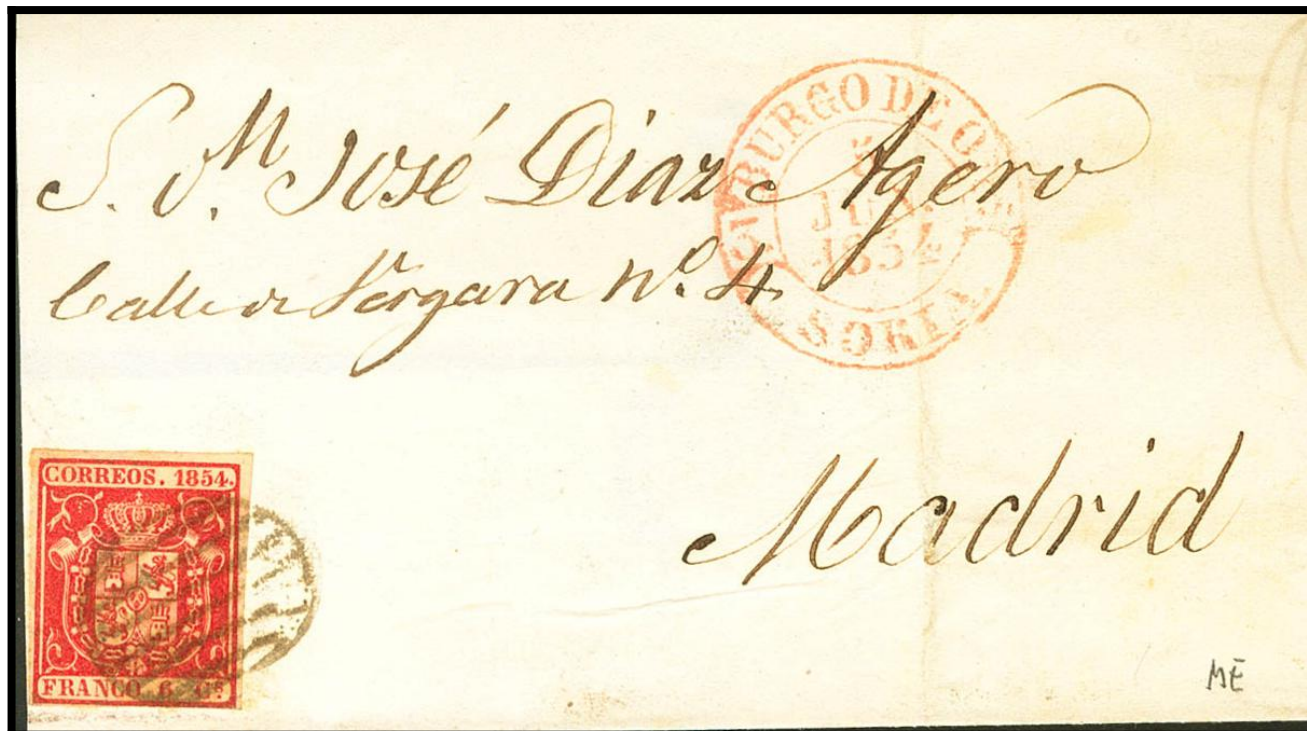 S. D.ⁿ José Diaz Agero
Calle de Vergara Nº. 4.
BURGO DE O
JU
1854
SORIA
Madrid
CORREOS. 1854.
FRANCO 6 Cˢ
ME